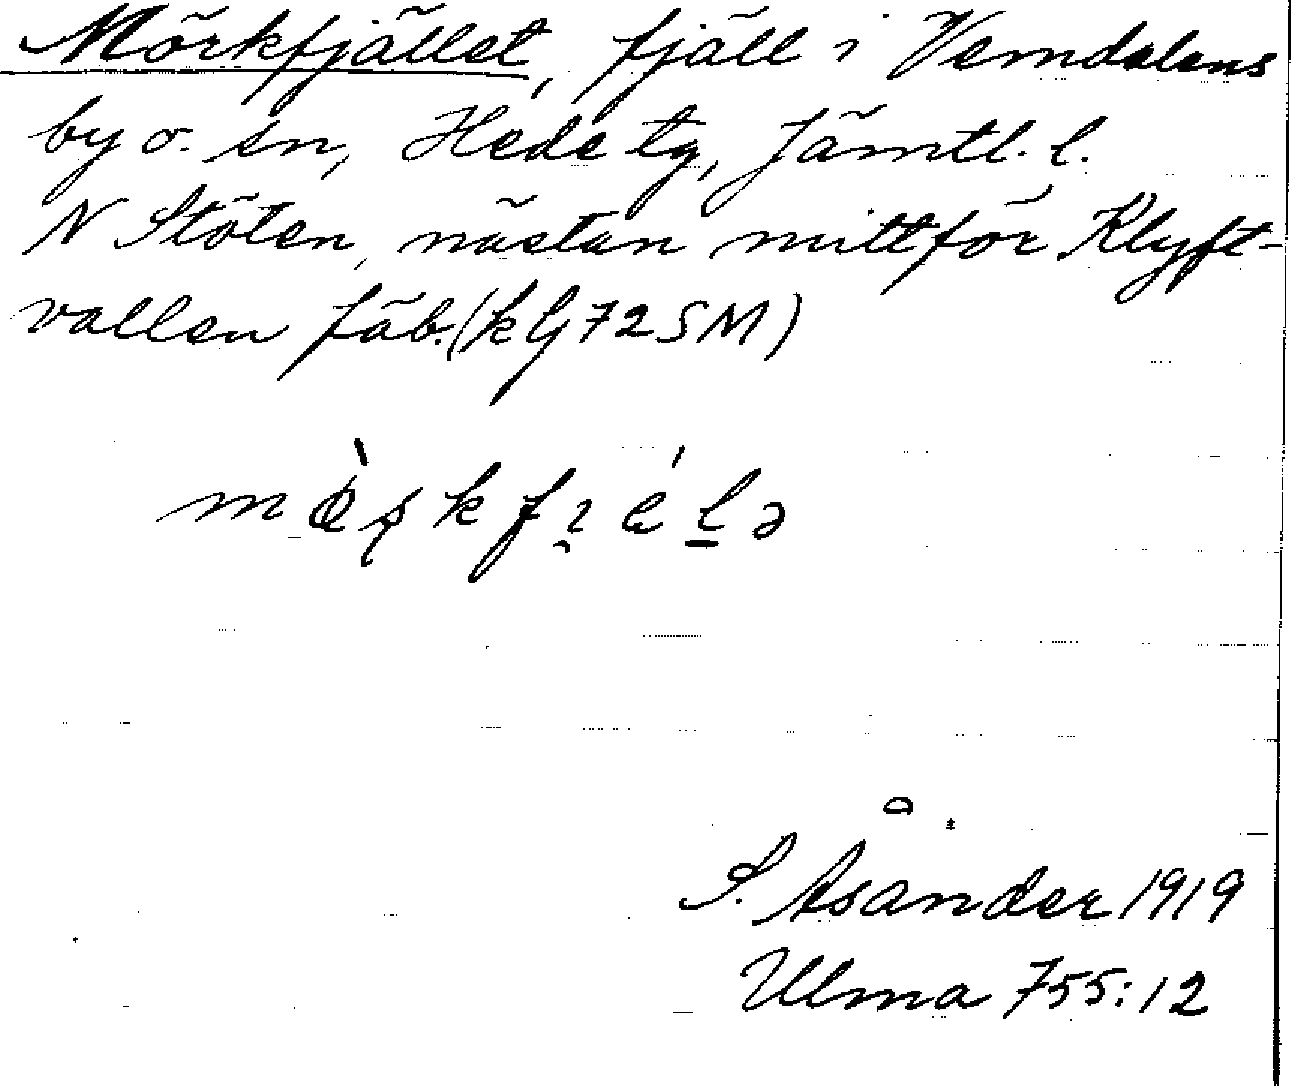 Mörkfjället, fjäll i Vemdalens
by o. sn, Hede tg, Jämtl. l.
N Stöten, nästan mittför Klyft-
vallen fäb. (k G 72 SM)
S. Åsander 1919
Ulma 755:12